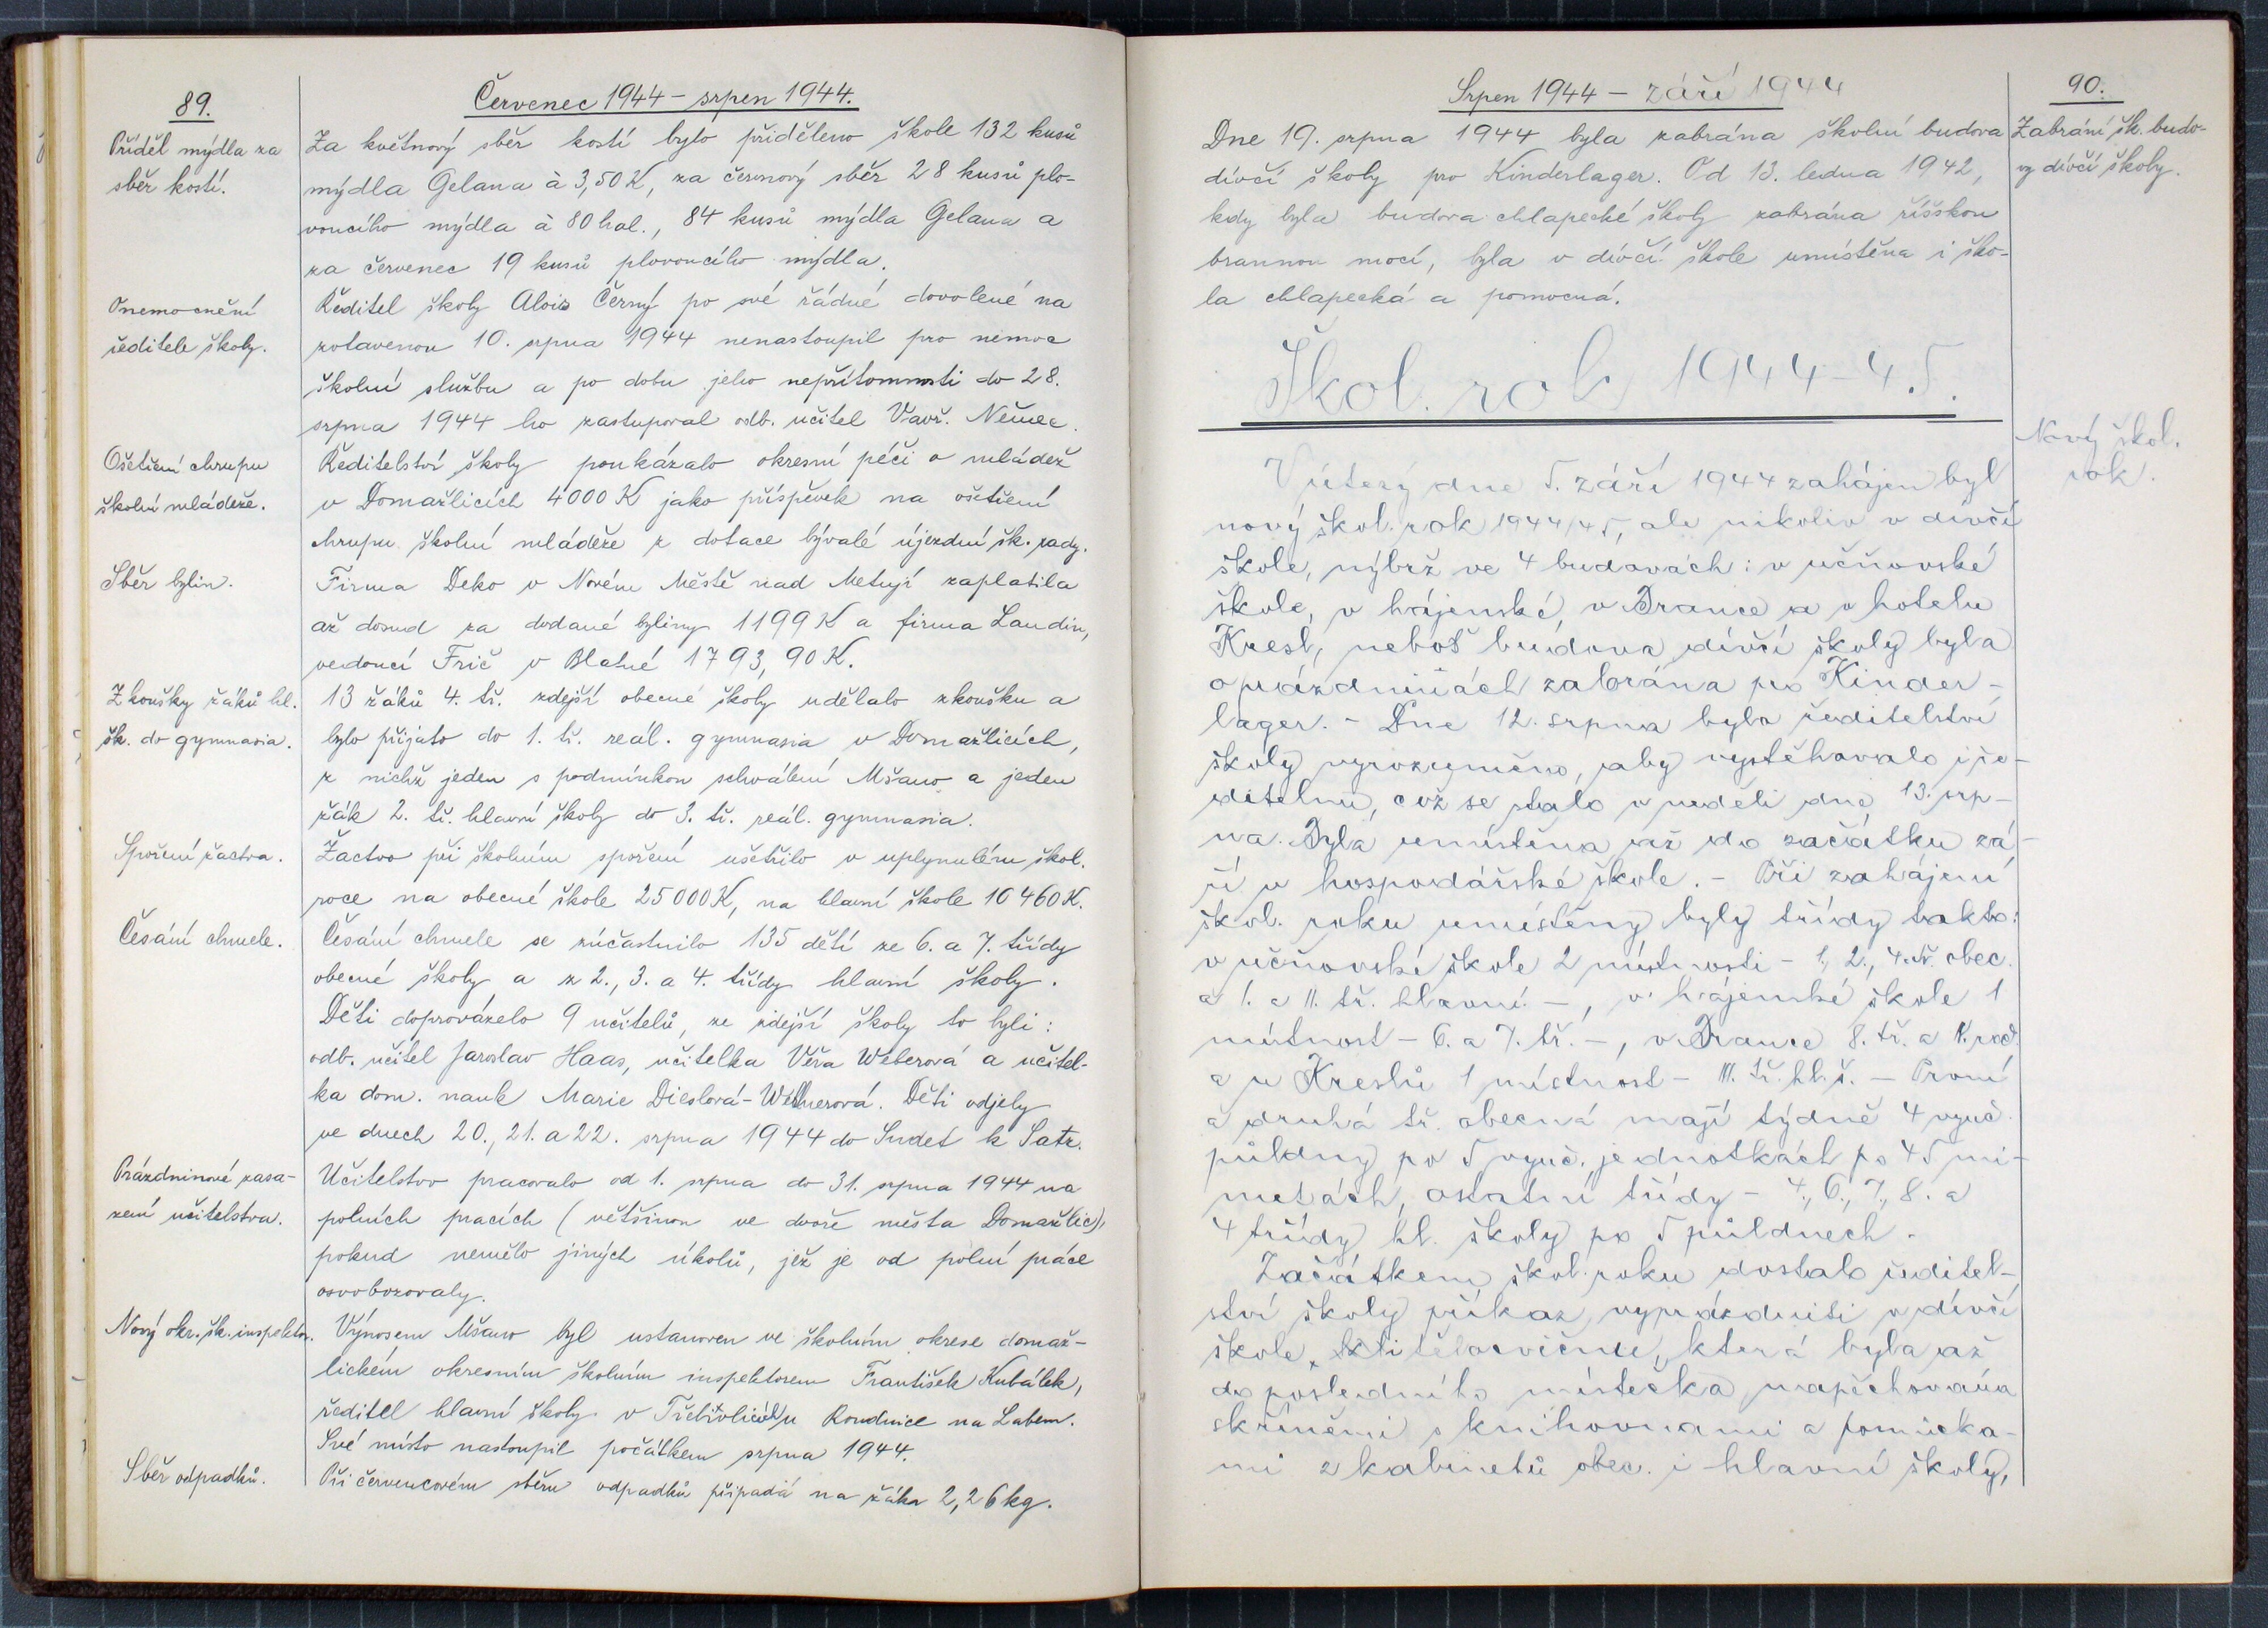 89.
Červenec 1944 – srpen 1944.
Příděl mýdla za
sběr kostí.
Za květnový sběr kostí bylo přiděleno škole 132 kusů
mýdla Gelana à 3,50 K, za červnový sběr 28 kusů plo-
voucího mýdla à 80 hal., 84 kusů mýdla Gelana a
za červenec 19 kusů plovoucího mýdla.
Onemocnění
ředitele školy.
Ředitel školy Alois Černý po své řádné dovolené na
zotavenou 10. srpna 1944 nenastoupil pro nemoc
školní službu a po dobu jeho nepřítomnosti do 28.
srpna 1944 ho zastupoval odb. učitel Vavř. Němec.
Ošetření chrupu
školní mládeže.
Ředitelství školy poukázalo okresní péči o mládež
v Domažlicích 4000 K jako příspěvek na ošetření
chrupu školní mládeže z dotace bývalé újezdní šk. rady.
Sběr bylin.
Firma Deko v Novém Městě nad Metují zaplatila
až dosud za dodané byliny 1199 K a firma Laudin,
vedoucí Frič v Blatné 1793,90 K.
Zkoušky žáků hl.
šk. do gymnasia.
13 žáků 4. tř. zdejší obecné školy udělalo zkoušku a
bylo přijato do 1. tř. reál. gymnasia v Domažlicích,
z nichž jeden s podmínkou schválení Mšano a jeden
žák 2. tř. hlavní školy do 3. tř. reál. gymnasia.
Spoření žactva.
Žactvo při školním spoření ušetřilo v uplynulém škol.
roce na obecné škole 25000 K, na hlavní škole 10460 K.
Česání chmele.
Česání chmele se zúčastnilo 135 dětí ze 6. a 7. třídy
obecné školy a z 2., 3. a 4. třídy hlavní školy.
Děti doprovázelo 9 učitelů, ze zdejší školy to byli:
odb. učitel Jaroslav Haas, učitelka Věra Weberová a učitel-
ka dom. nauk Marie Dieslová-. Děti odjely
ve dnech 20., 21. a 22. srpna 1944 do Sudet k Satz.
Prázdninové zasa-
zení učitelstva.
Učitelstvo pracovalo od 1. srpna do 31. srpna 1944 na
polních pracích (většinou ve dvoře města Domažlic),
pokud nemělo jiných úkolů, jež je od polní práce
osvobozovaly.
Nový okr. šk. inspektor.
Výnosem Mšano byl ustanoven ve školním okrese domaž-
lickém okresním školním inspektorem František Kubálek,
ředitel hlavní školy v Třebívlicích u Roudnice na Labem.
Své místo nastoupil počátkem srpna 1944.
Sběr odpadků.
Při červencovém sběru odpadků připadá na žáka 2,26 kg.
Srpen 1944 – září 1944
90.
Dne 19. srpna 1944 byla zabrána školní budova
dívčí školy pro Kinderlager. Od 13. ledna 1942,
kdy byla budova chlapecké školy zabrána říšskou
brannou mocí, byla v dívčí škole umístěna i ško-
la chlapecká a pomocná.
Zabrání šk. budo-
vy dívčí školy.
Škol. rok 1944-45.
Nový škol.
rok.
V úterý dne 5. září 1944 zahájen byl
nový škol. rok 1944/45, ale nikoliv v dívčí
škole, nýbrž ve 4 budovách: v učňovské
škole, v hájenské, v Brance a v hotelu
Kresl, neboť budova dívčí školy byla
o prázdninách zabrána pro Kinder-
lager. – Dne 12. srpna bylo ředitelství
školy vyrozuměno, aby vystěhovalo i ře-
ditelnu, což se stalo v neděli dne 13. srp-
na. Byla umístěna až do začátku zá-
ří v hospodářské škole. – Při zahájení
škol. roku umístěny byly třídy takto:
v učňovské škole 2 místnosti – 1., 2., 4. tř. obec.
a I. a II. tř. hlavní –, v hájenské škole 1
místnost – 6. a 7. tř. –, v Brance 8. tř. a
a u Kreslů 1 místnost – III. tř. hl. š. – První
a druhá tř. obecná mají týdně 4 vyuč.
půldny po 5 vyuč. jednotkách po 45 mi-
nutách, ostatní třídy – 4., 6., 7., 8. a
4 třídy hl. školy po 5 půldnech.
Začátkem škol. roku dostalo ředitel-
ství školy příkaz vyprázdniti v dívčí
škole tělocvičnu, která byla až
do posledního místečka napěchována
skříněmi s knihovnami a pomůcka-
mi z kabinetů obec. i hlavní školy,